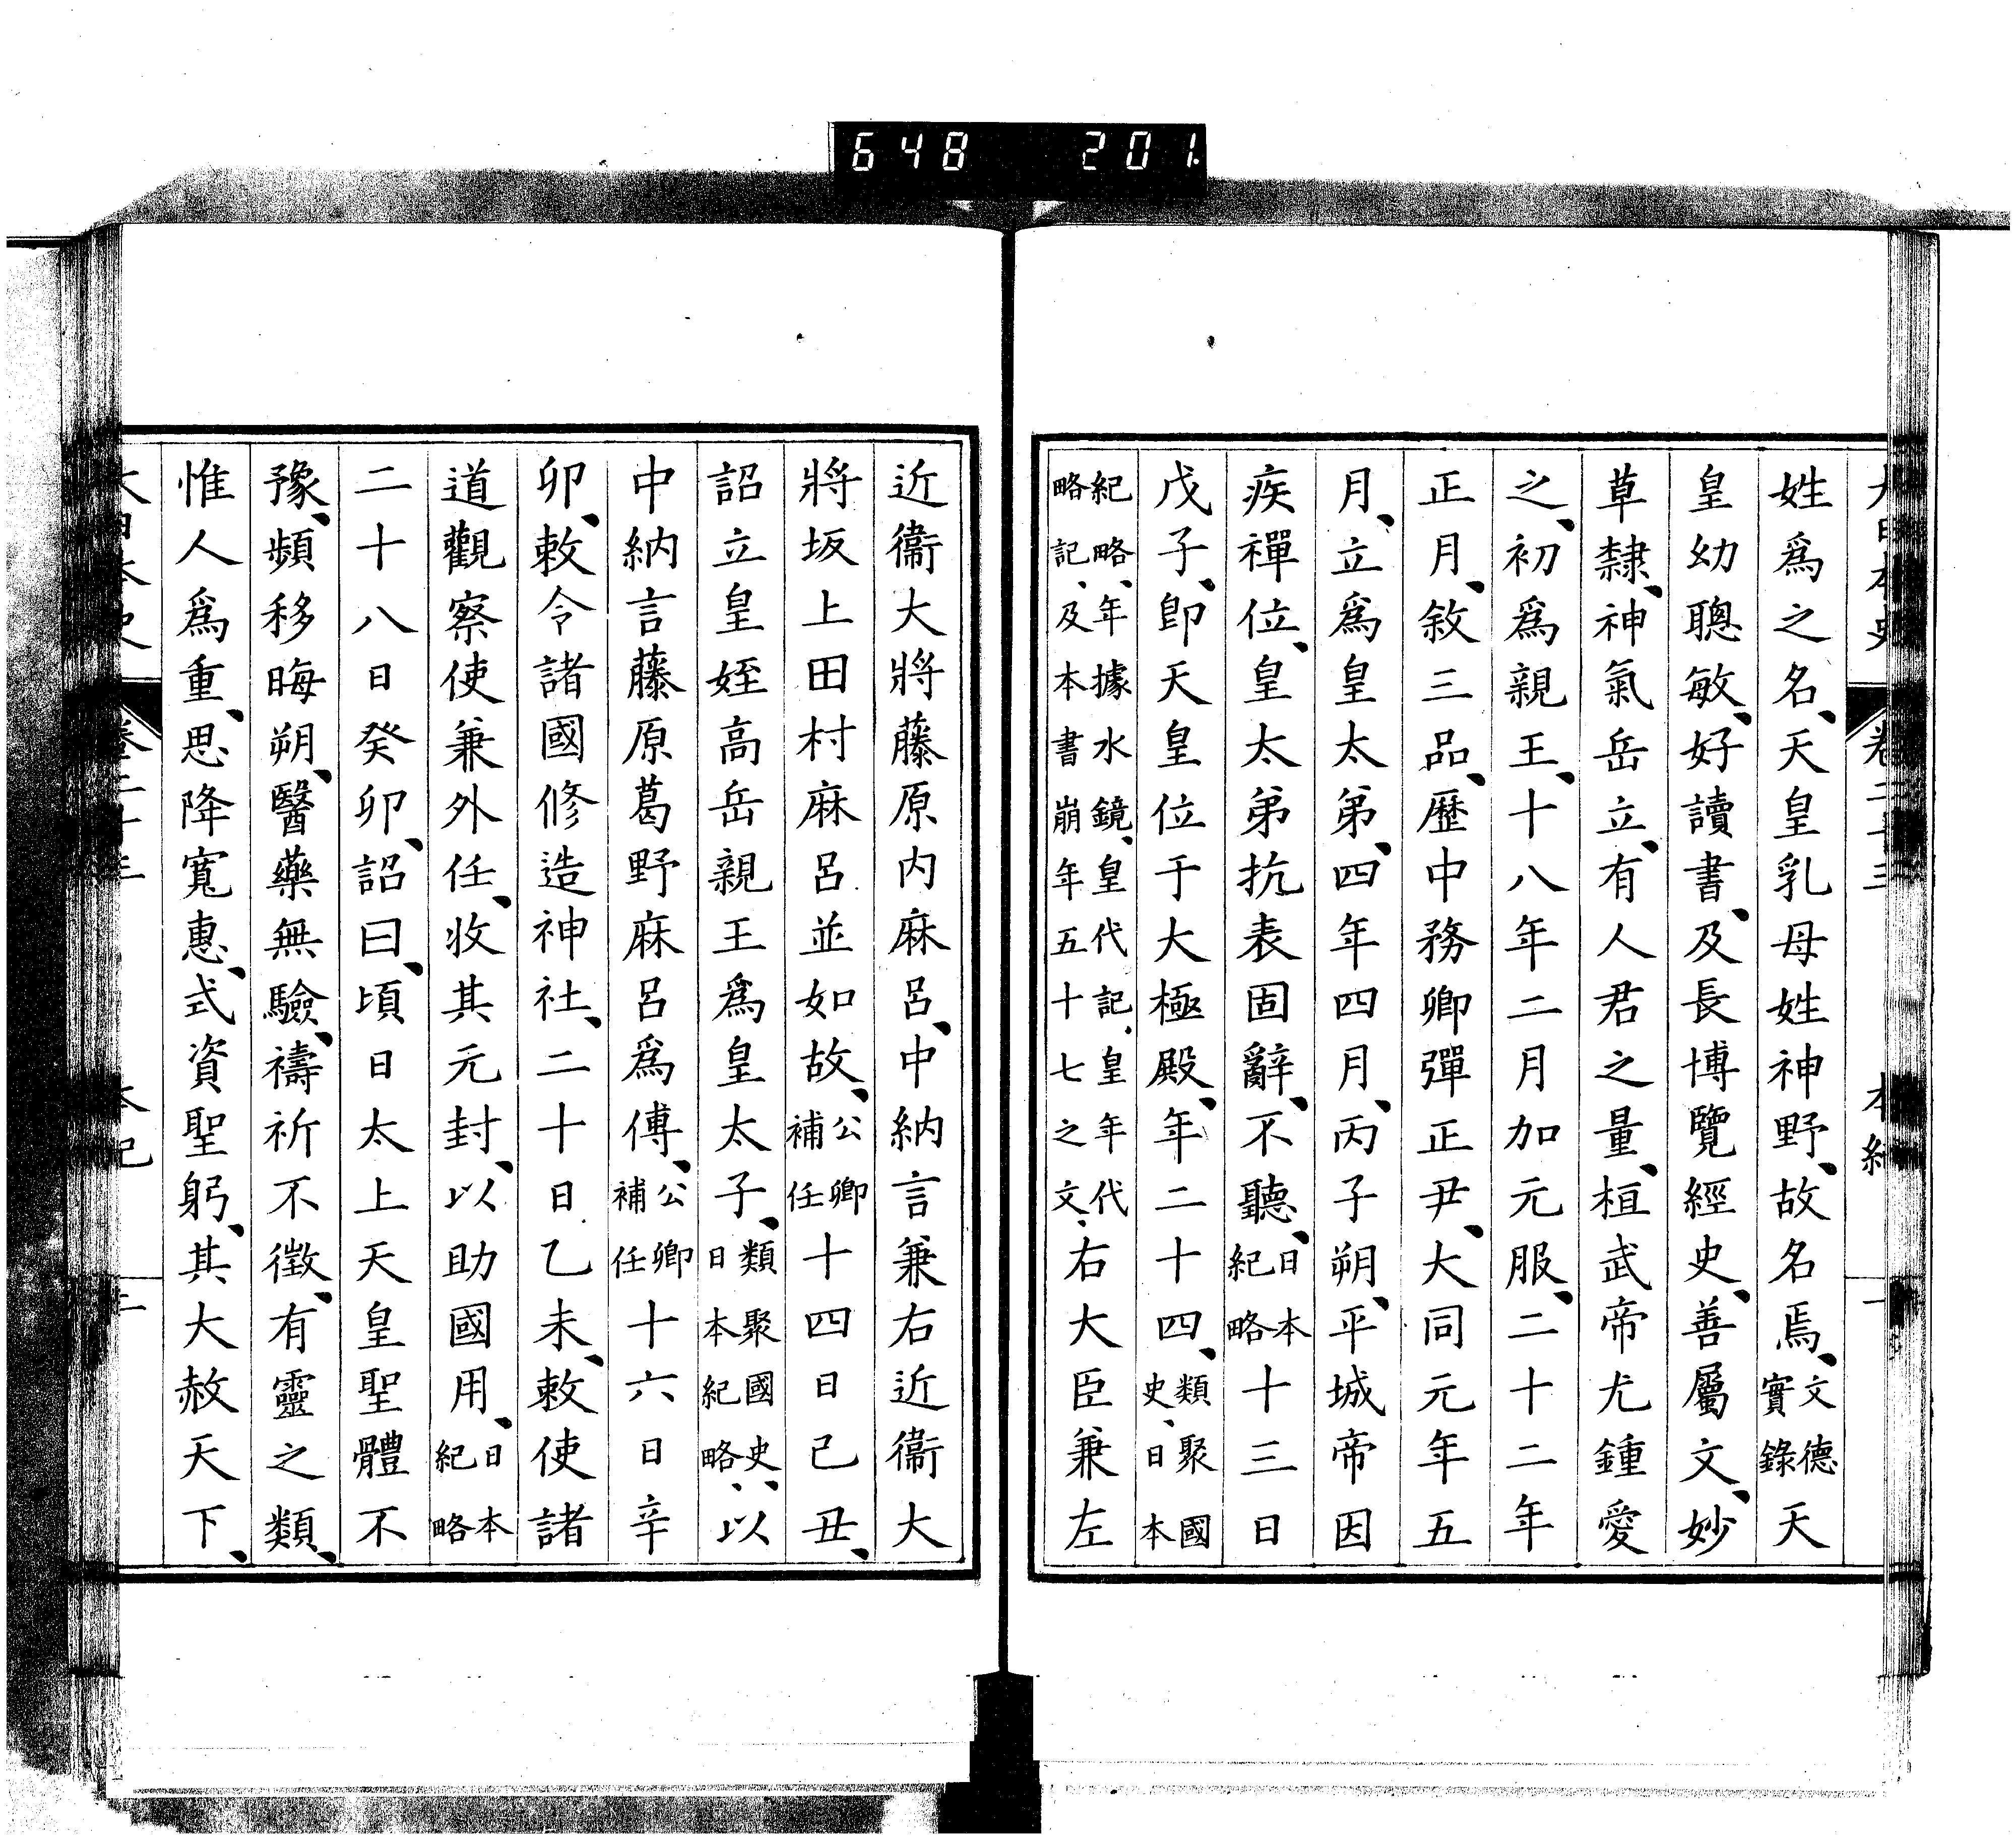 648 201.
大日本史 卷二十三 本紀 一
姓爲之名、天皇乳母姓神野、故名焉、文德實錄天
皇幼聰敏、好讀書、及長博覽經史、善屬文、妙
草隸、神氣岳立、有人君之量、桓武帝尤鍾愛
之、初爲親王、十八年二月加元服、二十二年
正月、敘三品、歷中務卿彈正尹、大同元年五
月、立爲皇太弟、四年四月、丙子朔、平城帝因
疾禪位、皇太弟抗表固辭、不聽、日本紀略十三日
戊子、卽天皇位于大極殿、年二十四、類聚國史、日本
紀略、年據水鏡、皇代記、皇年代略記、及本書崩年五十七之文、右大臣兼左
近衞大將藤原内麻呂、中納言兼右近衞大
將坂上田村麻呂並如故、公卿補任十四日己丑、
詔立皇姪高岳親王爲皇太子、類聚國史、日本紀略、以
中納言藤原葛野麻呂爲傅、公卿補任十六日辛
卯、敕令諸國修造神社、二十日乙未、敕使諸
道觀察使兼外任、收其元封、以助國用、日本紀略
二十八日癸卯、詔曰、頃日太上天皇聖體不
豫、頻移晦朔、醫藥無驗、禱祈不徵、有靈之類、
惟人爲重、思降寬惠、式資聖躬、其大赦天下、